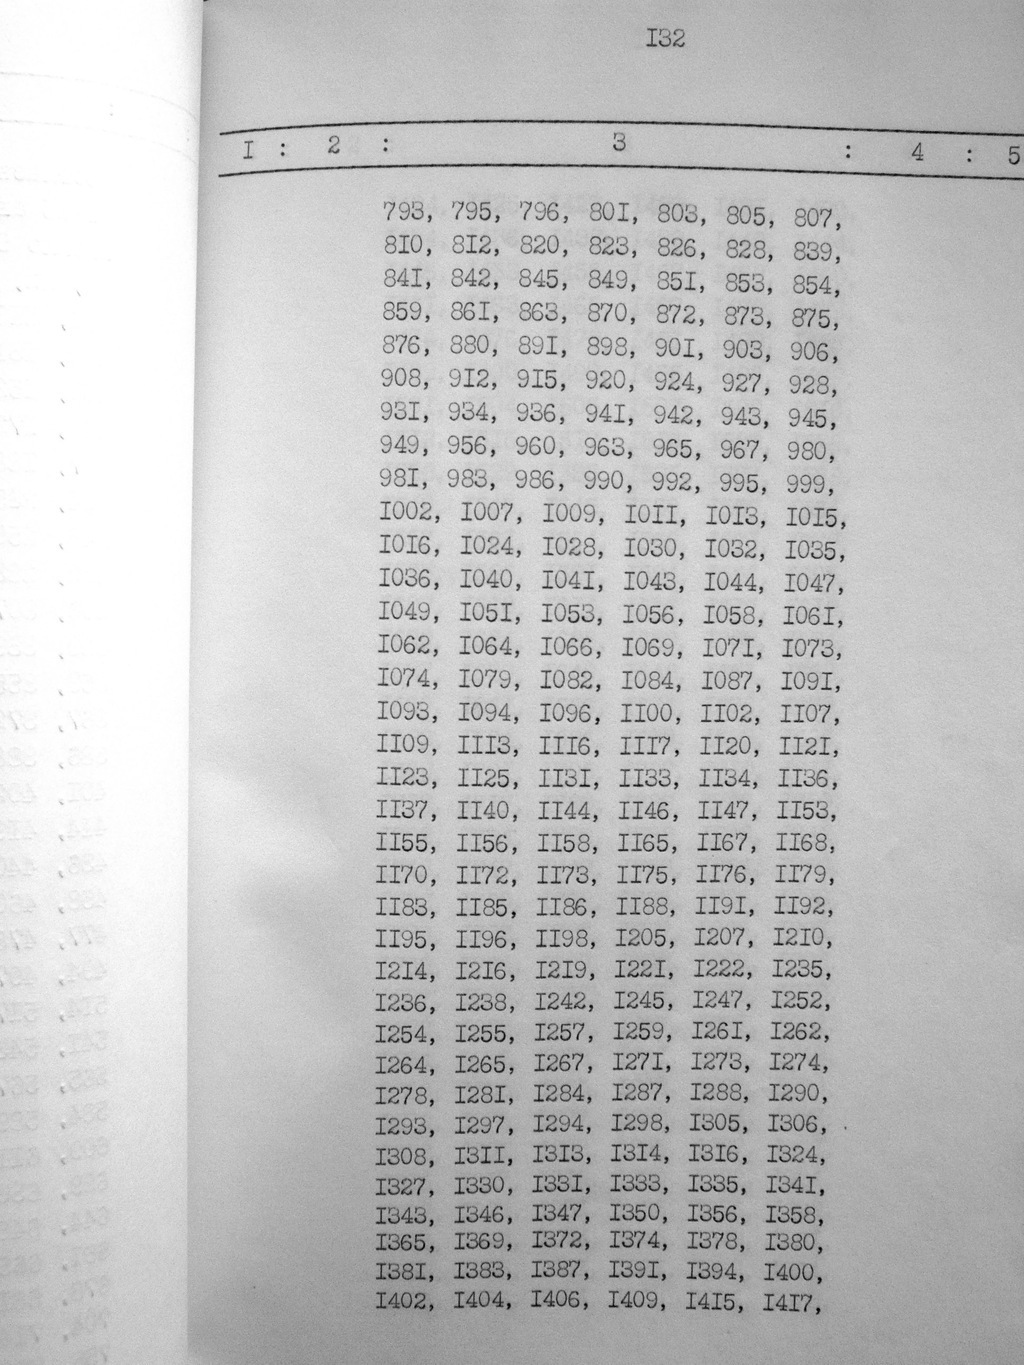 I32
I : 2 : 3 : 4 : 5
793, 795, 796, 80I, 803, 805, 807,
8I0, 8I2, 820, 823, 826, 828, 839,
84I, 842, 845, 849, 85I, 853, 854,
859, 86I, 863, 870, 872, 873, 875,
876, 880, 89I, 898, 90I, 903, 906,
908, 9I2, 9I5, 920, 924, 927, 928,
93I, 934, 936, 94I, 942, 943, 945,
949, 956, 960, 963, 965, 967, 980,
98I, 983, 986, 990, 992, 995, 999,
I002, I007, I009, I0II, I0I3, I0I5,
I0I6, I024, I028, I030, I032, I035,
I036, I040, I04I, I043, I044, I047,
I049, I05I, I053, I056, I058, I06I,
I062, I064, I066, I069, I07I, I073,
I074, I079, I082, I084, I087, I09I,
I093, I094, I096, II00, II02, II07,
II09, III3, III6, III7, II20, II2I,
II23, II25, II3I, II33, II34, II36,
II37, II40, II44, II46, II47, II53,
II55, II56, II58, II65, II67, II68,
II70, II72, II73, II75, II76, II79,
II83, II85, II86, II88, II9I, II92,
II95, II96, II98, I205, I207, I2I0,
I2I4, I2I6, I2I9, I22I, I222, I235,
I236, I238, I242, I245, I247, I252,
I254, I255, I257, I259, I26I, I262,
I264, I265, I267, I27I, I273, I274,
I278, I28I, I284, I287, I288, I290,
I293, I297, I294, I298, I305, I306,
I308, I3II, I3I3, I3I4, I3I6, I324,
I327, I330, I33I, I333, I335, I34I,
I343, I346, I347, I350, I356, I358,
I365, I369, I372, I374, I378, I380,
I38I, I383, I387, I39I, I394, I400,
I402, I404, I406, I409, I4I5, I4I7,